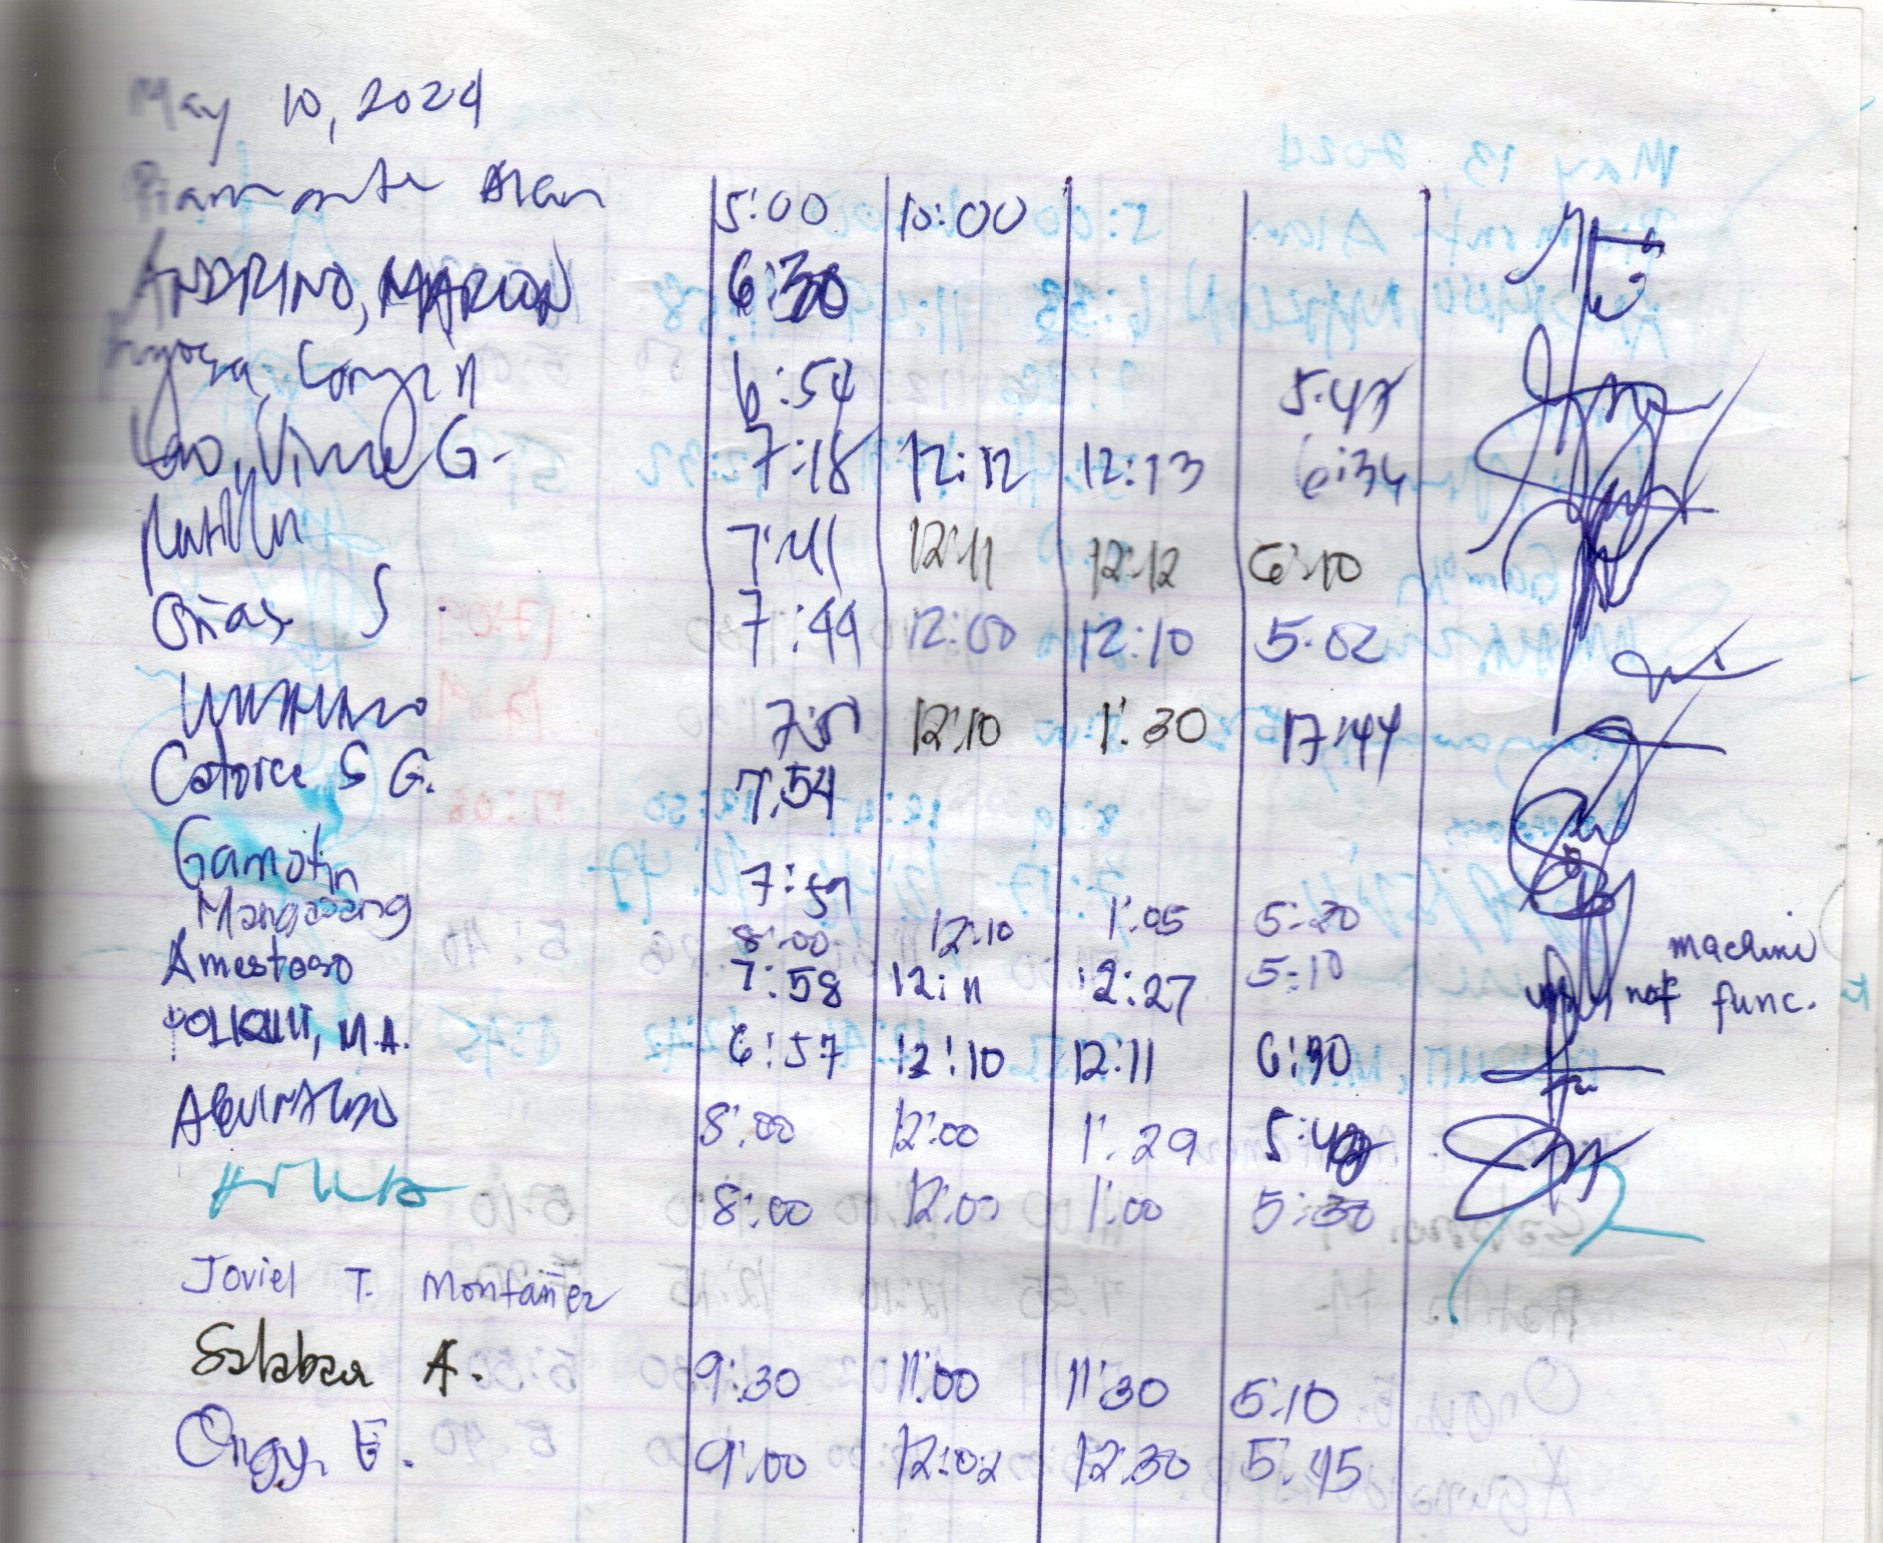 May 10, 2024
Piamonte Alan 5:00 10:00
ANDRINO, MARLON 6:30
6:54 5:47
Yao, Vince G. 7:18 12:12 12:13 6:34
7:41 12:11 12:12 6:10
Oñas S. 7:44 12:00 12:10 5:02
12:10 1:30 17:44
Catorce S G. 7:54
Gamotin 7:59
Mangadang 8:00 12:10 1:05 5:20
machine
Amestoso 7:58 12:11 12:27 5:10 not func.
M.A. 6:57 12:10 12:11 6:30
AGUINALDO 8:00 12:00 1:29
8:00 12:00 1:00 5:30
Joviel T. Montañez
Salabar A. 9:30 11:00 11:30 5:10
Ongy, E. 9:00 12:02 12:30 5:45